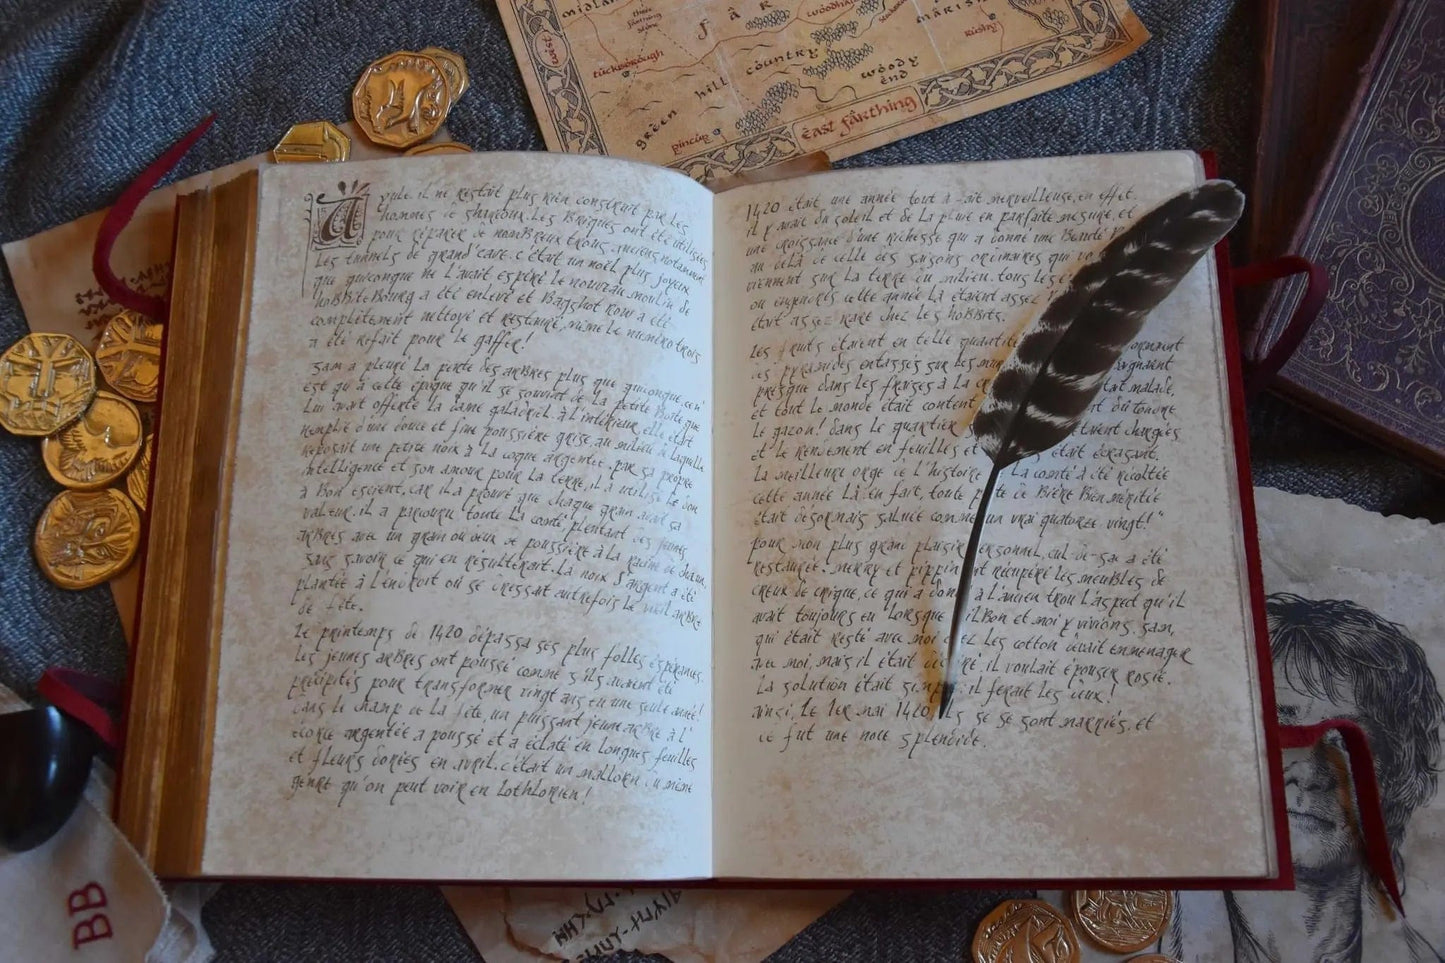 midlan
tuckborough
three farthing stone
woodhall
marish
rushy
green hill country
woody end
pincup
east farthing
west
A Yule, il ne restait plus rien construit par les
hommes de sharcoux. Les Briques ont été utilisées
pour réparer de nombreux trous anciens notamment
les tunnels de Grand'cave. c'était un noël plus joyeux
que quiconque ne l'avait espéré. le nouveau moulin de
hobbitebourg a été enlevé et Bagshot Row a été
complètement nettoyé et restauré, même le numéro trois
a été refait pour le gaffer!
Sam a pleuré la perte des arbres plus que quiconque. ce n'
est qu'à cette époque qu'il se souvint de la petite Boîte que
lui avait offerte la Dame galadriel. à l'intérieur, elle était
remplie d'une douce et fine poussière grise, au milieu de laquelle
reposait une petite noix à la coque argentée. par sa propre
intelligence et son amour pour la terre, il a utilisé le don
à Bon escient, car il a prouvé que chaque grain avait sa
valeur. il a parcouru toute la comté plantant des jeunes
arbres avec un grain ou deux de poussière à la racine de chacun,
sans savoir ce qui en résulterait. La noix d'argent a été
plantée à l'endroit où se dressait autrefois le vieil arbre
de fête.
Le printemps de 1420 dépassa ses plus folles espérances.
Les jeunes arbres ont poussé comme s'ils avaient été
précipités pour transformer vingt ans en une seule année!
dans le champ de la fête, un puissant jeune arbre à l'
écorce argentée a poussé et a éclaté en longues feuilles
et fleurs dorées en avril. c'était un mallorn du même
genre qu'on peut voir en Lothlorien!
1420 était une année tout à fait merveilleuse, en effet.
il y avait du soleil et de la pluie en parfaite mesure, et
une croissance d'une richesse qui a donné une Beauté
au delà de celle des saisons ordinaires qui
viennent sur la terre du milieu. tous les
ou engendrés cette année là étaient assez
était assez rare chez les hobbits.
Les fruits étaient en telle quantité
des pyramides entassés sur les
presque dans les fraises à la
et tout le monde était content
malade,
dû tondre
Le gazon! dans le quartier
chargées
et le rendement en feuilles et était écrasant.
La meilleure orge de l'histoire de la comté a été récoltée
cette année là. en fait, toute pinte de Bière Bien méritée
était désormais saluée comme un vrai quatorze-vingt!"
pour mon plus grand plaisir personnel, cul-de-sac a été
restauré. merry et pippin ont récupéré les meubles de
creux de crique, ce qui a donné à l'ancien trou l'aspect qu'il
avait toujours eu lorsque Bilbon et moi y vivions. sam,
qui était resté avec moi chez les cotton devait emménager
avec moi, mais il était déchiré. il voulait épouser rosie.
La solution était simple: il ferait les deux!
ainsi, le 1er mai 1420, ils se sont mariés, et
ce fut une noce splendide.
BB